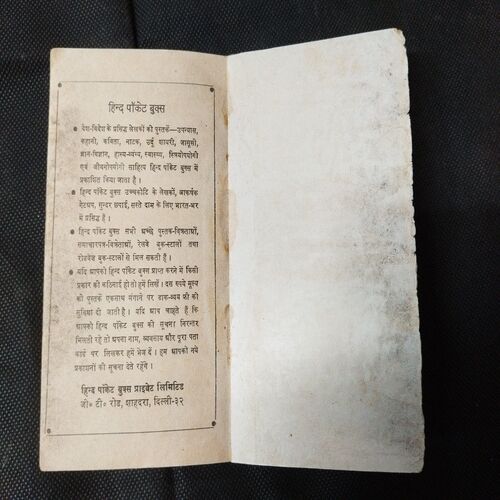 हिन्द पॉकेट बुक्स
देश-विदेश के प्रसिद्ध लेखकों की पुस्तकें—उपन्यास,
कहानी, कविता, नाटक, उर्दू शायरी, जासूसी,
ज्ञान-विज्ञान, हास्य-व्यंग्य, स्वास्थ्य, स्त्रियोपयोगी
एवं जीवनोपयोगी साहित्य हिन्द पॉकेट बुक्स में
प्रकाशित किया जाता है।
हिन्द पॉकेट बुक्स उच्चकोटि के लेखकों, आकर्षक
गेटअप, सुन्दर छपाई, सस्ते दाम के लिए भारत-भर
में प्रसिद्ध हैं।
हिन्द पॉकेट बुक्स सभी अच्छे पुस्तक-विक्रेताओं,
समाचारपत्र-विक्रेताओं, रेलवे बुक-स्टालों तथा
रोडवेज बुक-स्टालों से मिल सकती हैं।
यदि आपको हिन्द पॉकेट बुक्स प्राप्त करने में किसी
प्रकार की कठिनाई हो तो हमें लिखें। दस रुपये मूल्य
की पुस्तकें एकसाथ मंगाने पर डाक-व्यय फ्री की
सुविधा दी जाती है। यदि आप चाहते हैं कि
आपको हिन्द पॉकेट बुक्स की सूचना निरन्तर
मिलती रहे तो अपना नाम, व्यवसाय और पूरा पता
कार्ड पर लिखकर हमें भेज दें। हम आपको नये
प्रकाशनों की सूचना देते रहेंगे।
हिन्द पॉकेट बुक्स प्राइवेट लिमिटेड
जी० टी० रोड, शाहदरा, दिल्ली-३२